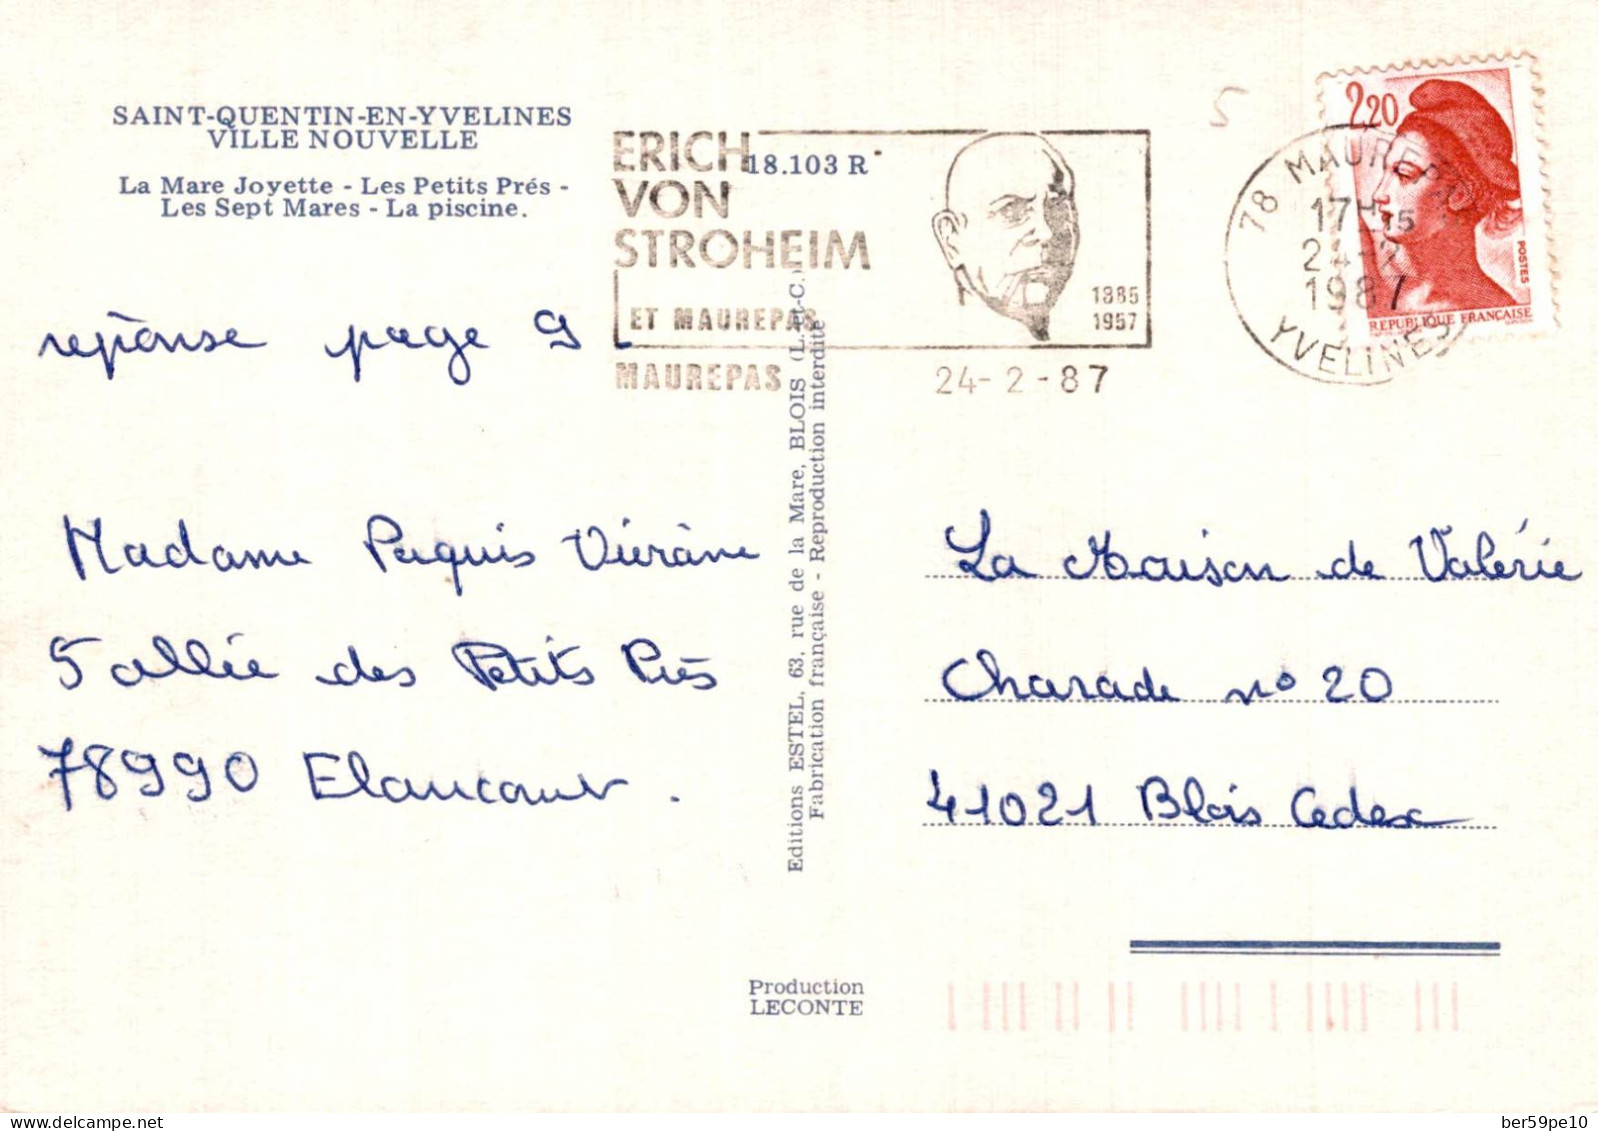 SAINT-QUENTIN-EN-YVELINES
VILLE NOUVELLE
La Mare Joyette - Les Petits Prés -
Les Sept Mares - La piscine.
18.103 R
ERICH
VON
STROHEIM
ET MAUREPAS
MAUREPAS
1885
1957
24-2-87
78 MAUREPAS
17H15
24-2
1987
YVELINES
2,20
POSTES
REPUBLIQUE FRANCAISE
réponse page 9
Madame Paquis
5 allée des Petits Prés
78990 Elancourt.
Editions ESTEL, 63, rue de la Mare, BLOIS (L.-et-C.)
Fabrication française - Reproduction interdite
La Maison de Valérie
Charade n° 20
41021 Blois Cedex
Production
LECONTE
delcampe.net
ber59pe10